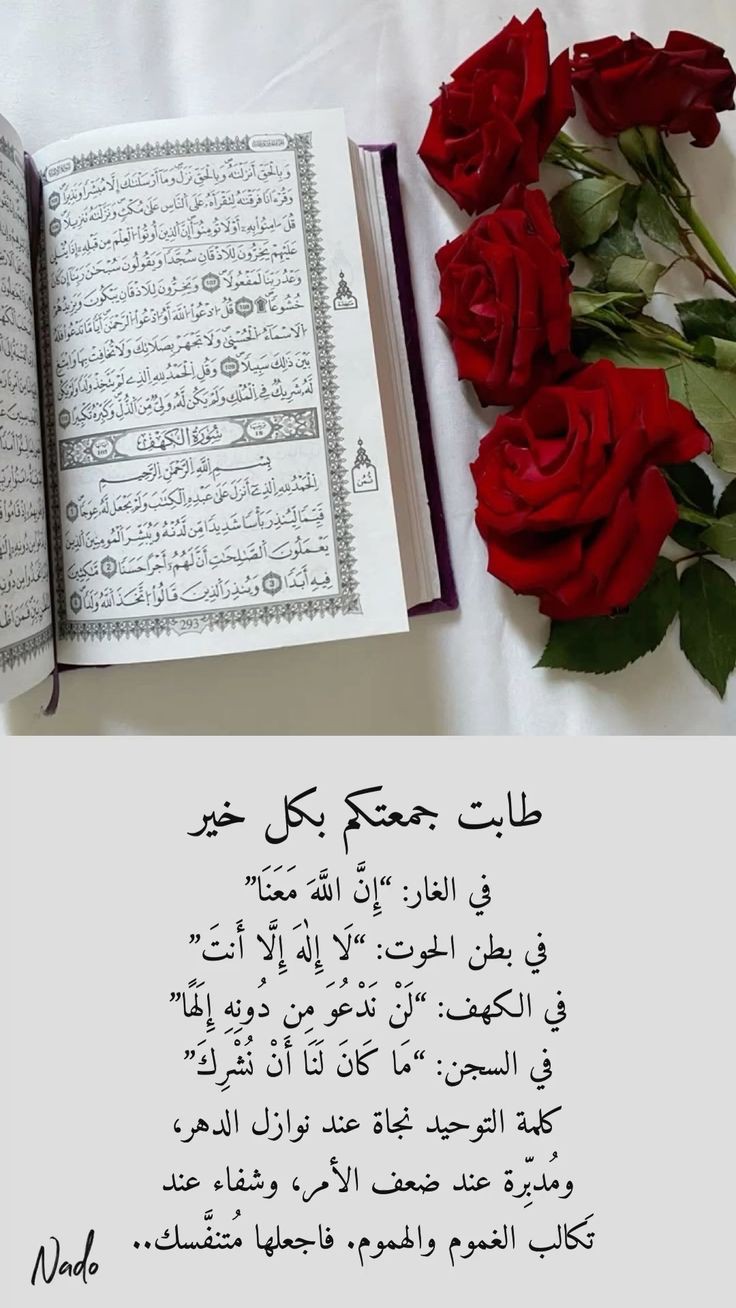 وَبِالْحَقِّ أَنزَلْنَٰهُ وَبِالْحَقِّ نَزَلَ وَمَا أَرْسَلْنَٰكَ إِلَّا مُبَشِّراً وَنَذِيراً
وَقُرْءَاناً فَرَقْنَٰهُ لِتَقْرَأَهُ عَلَى النَّاسِ عَلَىٰ مُكْثٍ وَنَزَّلْنَٰهُ تَنزِيلاً
قُلَ ـامِنُوا بِهِ أَوْ لَا تُؤْمِنُوا إِنَّ الذِينَ أُوتُوا الْعِلْمَ مِن قَبْلِهِ إِذَا يُتْلَىٰ
عَلَيْهِمْ يَخِرُّونَ لِلْأَذْقَانِ سُجَّداً وَيَقُولُونَ سُبْحَٰنَ رَبِّنَا إِن كَانَ
وَعْدُ رَبِّنَا لَمَفْعُولاً وَيَخِرُّونَ لِلْأَذْقَانِ يَبْكُونَ وَيَزِيدُهُمْ
خُشُوعاً قُلُ ادْعُوا اللَّهَ أَوُ ادْعُوا الرَّحْمَٰنَ أَيّاً مَّا تَدْعُوا فَلَهُ
الْأَسْمَاءُ الْحُسْنَىٰ وَلَا تَجْهَرْ بِصَلَاتِكَ وَلَا تُخَافِتْ بِهَا وَابْتَغِ
بَيْنَ ذَٰلِكَ سَبِيلاً وَقُلِ الْحَمْدُ لِلهِ الذِي لَمْ يَتَّخِذْ وَلَداً وَلَمْ يَكُن
لَّهُ شَرِيكٌ فِي الْمُلْكِ وَلَمْ يَكُن لَّهُ وَلِيٌّ مِّنَ الذُّلِّ وَكَبِّرْهُ تَكْبِيراً
سُورَةُ الْكَهْفِ
بِسْمِ اللَّهِ الرَّحْمَٰنِ الرَّحِيمِ
الْحَمْدُ لِلهِ الذِي أَنزَلَ عَلَىٰ عَبْدِهِ الْكِتَٰبَ وَلَمْ يَجْعَل لَّهُ عِوَجاً
قَيِّماً لِّيُنذِرَ بَأْساً شَدِيداً مِّن لَّدُنْهُ وَيُبَشِّرَ الْمُومِنِينَ الذِينَ
يَعْمَلُونَ الصَّٰلِحَٰتِ أَنَّ لَهُمْ أَجْراً حَسَناً 2 مَّٰكِثِينَ
فِيهِ أَبَداً 3 وَيُنذِرَ الذِينَ قَالُوا اتَّخَذَ اللَّهُ وَلَداً
293
طابت جمعتكم بكل خير
في الغار: “إِنَّ اللَّهَ مَعَنَا”
في بطن الحوت: “لَا إِلٰهَ إِلَّا أَنتَ”
في الكهف: “لَنْ نَدْعُوَ مِن دُونِهِ إِلَهًا”
في السجن: “مَا كَانَ لَنَا أَنْ نُشْرِكَ”
كلمة التوحيد نجاة عند نوازل الدهر،
ومُدبِّرة عند ضعف الأمر، وشفاء عند
تَكالب الغموم والهموم. فاجعلها مُتنفَّسك..
Nado